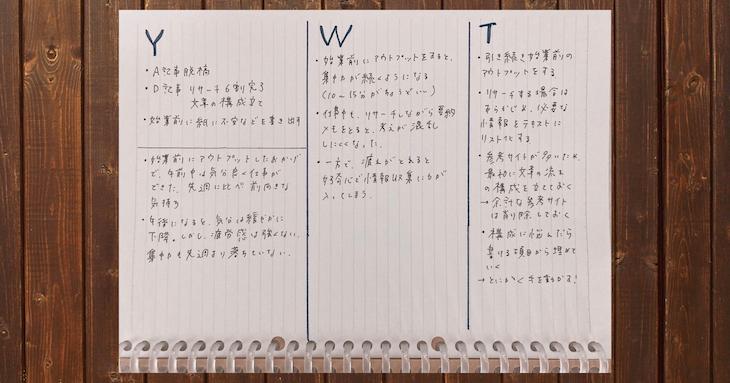 Y
・A記事脱稿
・D記事 リサーチ6割完了
文章の構成立て
・始業前に紙に不安などを書き出す
・始業前にアウトプットしたおかげ
で、午前中は気分良く仕事が
できた。先週に比べ前向きな
気持ち
・午後になると、気分は緩やかに
下降。しかし、疲労感は強くない。
集中力も先週より落ちていない。
W
・始業前にアウトプットをすると、
集中力が続くようになる
(10〜15分がちょうどいい)
・仕事中も、リサーチしながら要約
メモをとると、考えが混乱
しにくくなった。
・一方で、疲えがたまると
好奇心で情報収集に力が
入ってしまう。
T
・引き続き始業前の
アウトプットをする
・リサーチする場合は
あらかじめ、必要な
情報をテキストに
リスト化する
・参考サイトが多いため、
最初に文章の流れ
の構成を立てておく
→余計な参考サイト
は削除しておく
・構成に悩んだら
書ける項目から埋めて
いく
→とにかく手を動かす!